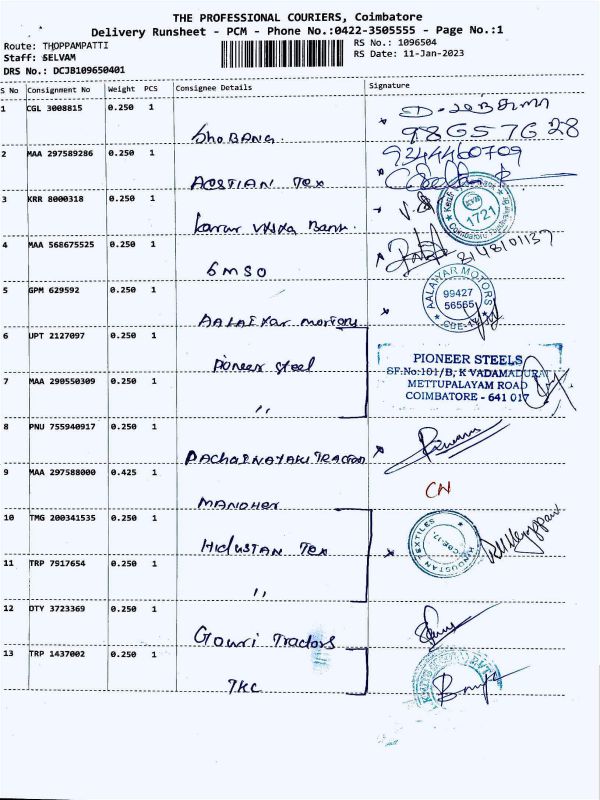 THE PROFESSIONAL COURIERS, Coimbatore
Delivery Runsheet - PCM - Phone No.:0422-3505555 - Page No.:1
Route: THOPPAMPATTI
RS No.: 1096504
Staff: SELVAM
RS Date: 11-Jan-2023
DRS No.: DCJB109650401
S No Consignment No Weight PCS Consignee Details Signature
1 CGL 3008815 0.250 1
ShoBANG.
98657G28
2 MAA 297589286 0.250 1
9244460709
AOSTIAN Tex
3 KRR 8000318 0.250 1
1721
Karur Vysya Bank.
4 MAA 568675525 0.250 1
8148101137
GMSO
5 GPM 629592 0.250 1
AALAIYAR MOTORS
99427
56565
CBE-14
AALAIYAR MOTORS
6 UPT 2127097 0.250 1
Pioneer Steel
PIONEER STEELS
SF.No:101/B, K VADAMADURAI
METTUPALAYAM ROAD
COIMBATORE - 641 017
7 MAA 290550309 0.250 1
"
8 PNU 755940917 0.250 1
9 MAA 297588000 0.425 1
CN
MANOHER
10 TMG 200341535 0.250 1
HINDUSTAN TEXTILES
CBE-17
HIDUSTAN Tex
11 TRP 7917654 0.250 1
"
12 OTY 3723369 0.250 1
Gouri Tractors
13 TRP 1437002 0.250 1
TKC